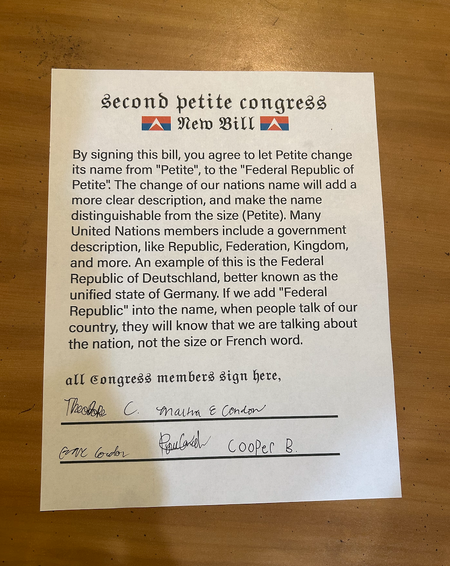 second petite congress
New Bill
By signing this bill, you agree to let Petite change
its name from "Petite", to the "Federal Republic of
Petite". The change of our nations name will add a
more clear description, and make the name
distinguishable from the size (Petite). Many
United Nations members include a government
description, like Republic, Federation, Kingdom,
and more. An example of this is the Federal
Republic of Deutschland, better known as the
unified state of Germany. If we add "Federal
Republic" into the name, when people talk of our
country, they will know that we are talking about
the nation, not the size or French word.
all Congress members sign here,
Theodore C. Martha E Condon
Condon Cooper B.